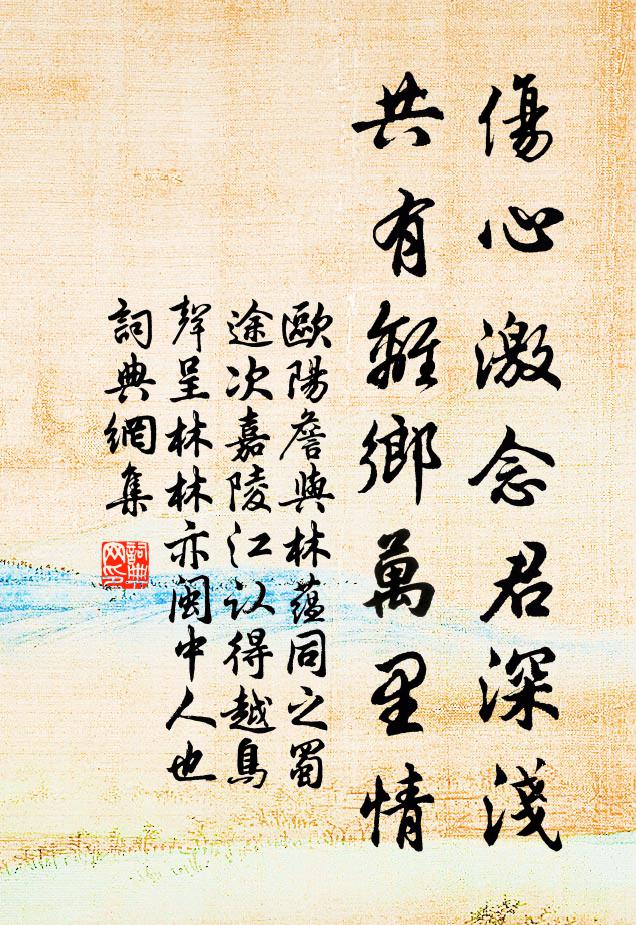 傷心激念君深淺
共有離鄉萬里情
歐陽詹與林蘊同之蜀
途次嘉陵江認得越鳥
聲呈林林亦閩中人也
詞典網集
詞典网